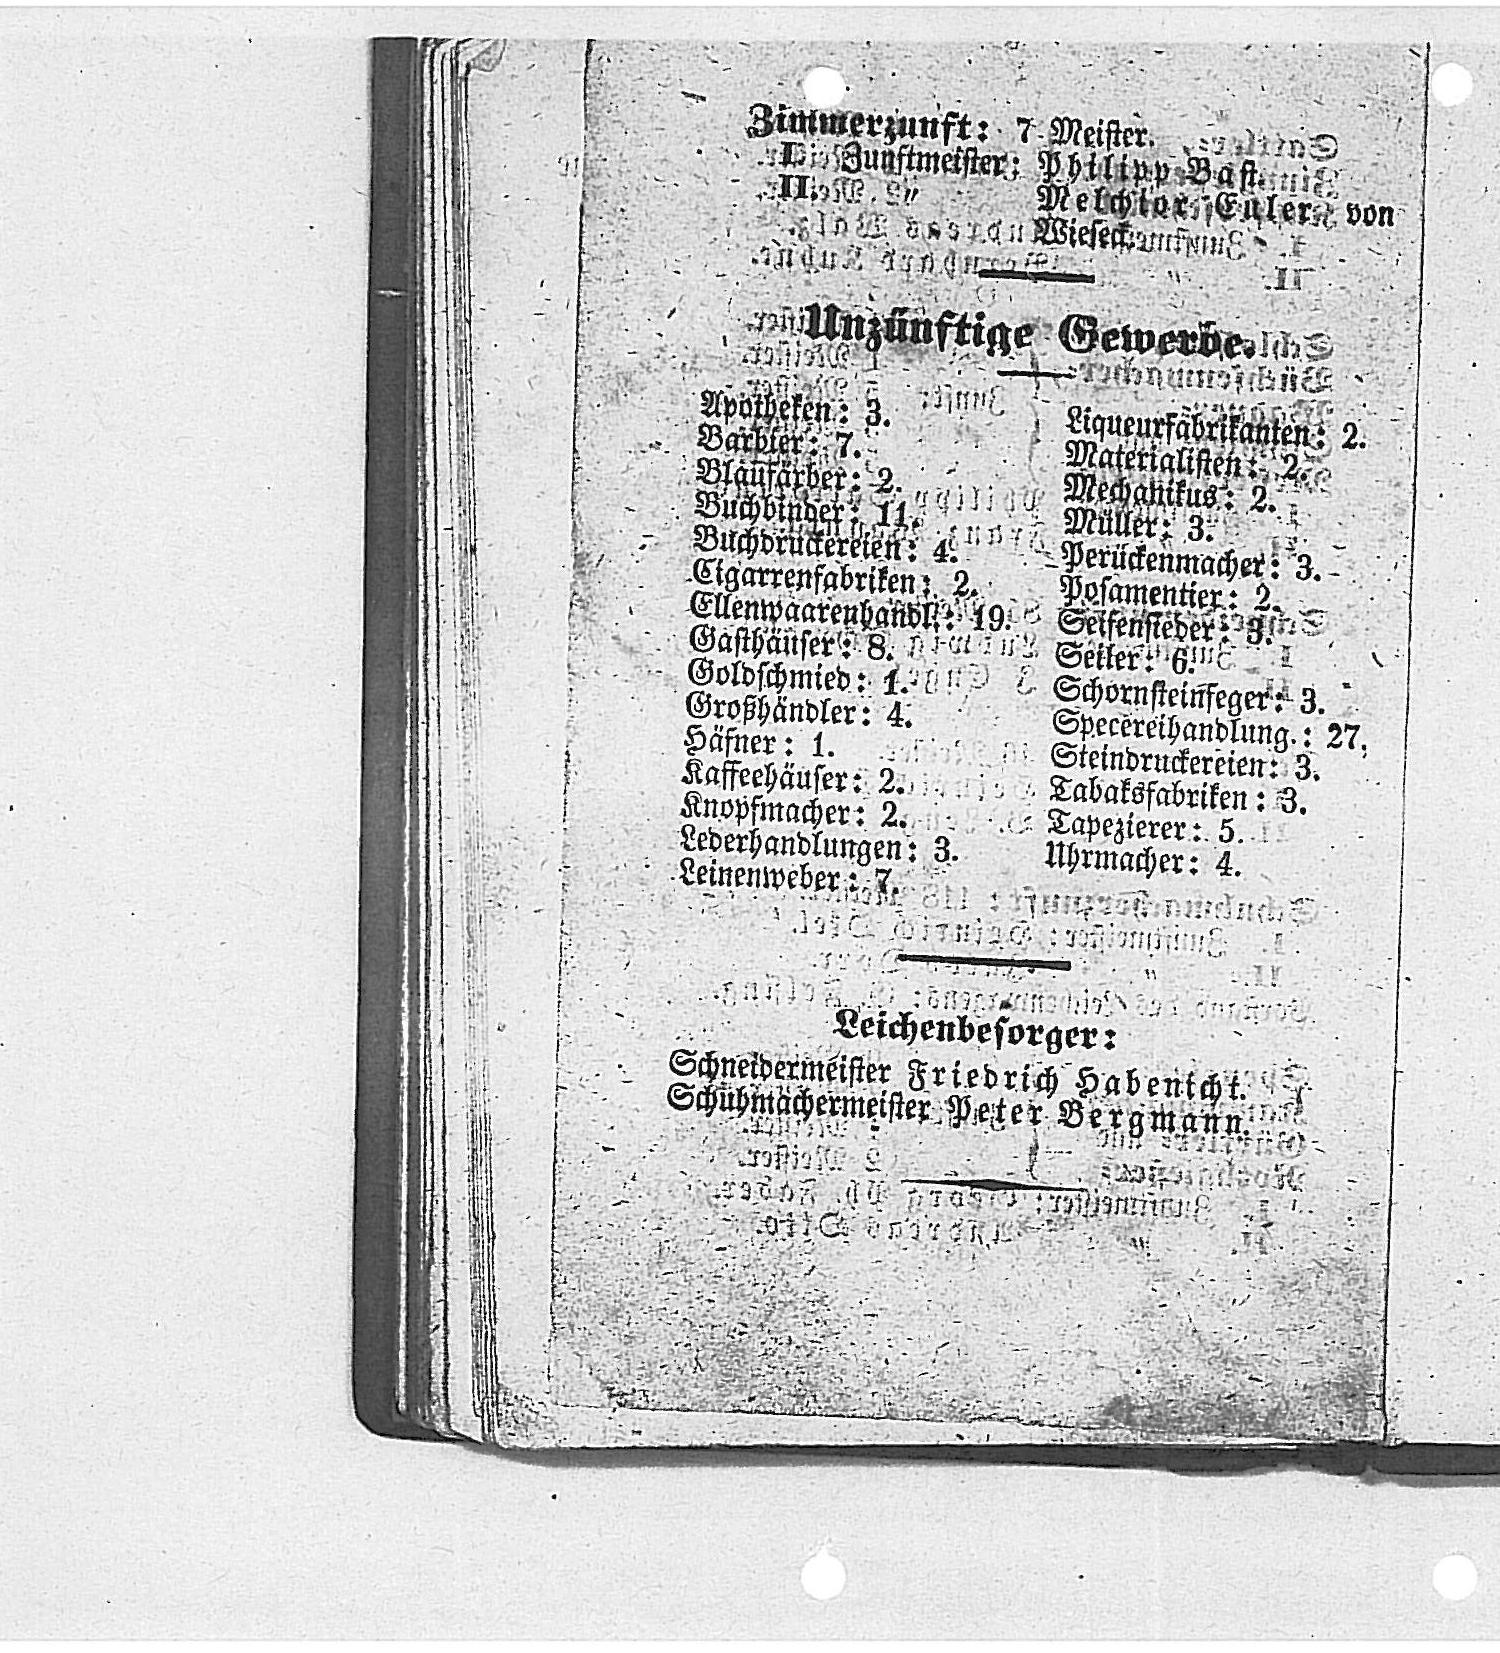 Zimmerzunft: 7 Meister.
I. Zunftmeister: Philipp Bast.
II. „ Melchior Euler von
Wieseck.
Unzünftige Gewerbe.
Apotheken: 3.
Barbier: 7.
Blaufärber: 2.
Buchbinder: 11.
Buchdruckereien: 4.
Cigarrenfabriken: 2.
Ellenwaarenhandl.: 19.
Gasthäuser: 8.
Goldschmied: 1.
Großhändler: 4.
Häfner: 1.
Kaffeehäuser: 2.
Knopfmacher: 2.
Lederhandlungen: 3.
Leinenweber: 7.
Liqueurfabrikanten: 2.
Materialisten: 2.
Mechanikus: 2.
Müller: 3.
Perückenmacher: 3.
Posamentier: 2.
Seifensieder: 3.
Seiler: 6.
Schornsteinfeger: 3.
Specereihandlung.: 27.
Steindruckereien: 3.
Tabaksfabriken: 3.
Tapezierer: 5.
Uhrmacher: 4.
Leichenbesorger:
Schneidermeister Friedrich Habenicht.
Schuhmachermeister Peter Bergmann.